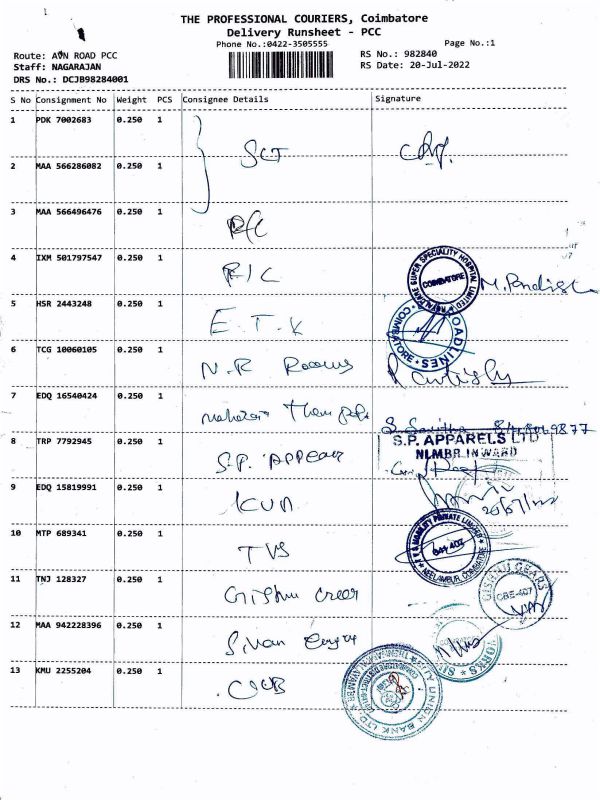 THE PROFESSIONAL COURIERS, Coimbatore
Delivery Runsheet - PCC
Phone No.:0422-3505555
Page No.:1
Route: AVN ROAD PCC
RS No.: 982840
Staff: NAGARAJAN
RS Date: 20-Jul-2022
DRS No.: DCJB98284001
S No Consignment No Weight PCS Consignee Details Signature
1 PDK 7002683 0.250 1
2 MAA 566286082 0.250 1
3 MAA 566496476 0.250 1
4 IXM 501797547 0.250 1 R/C
COIMBATORE
5 HSR 2443248 0.250 1 E.T.K
COIMBATORE
6 TCG 10060105 0.250 1 N.R Rooms
7 EDQ 16540424 0.250 1
8 TRP 7792945 0.250 1 S.P. APPEAR
S.P. APPARELS LTD
NLMBR INWARD
9 EDQ 15819991 0.250 1 KUM
10 MTP 689341 0.250 1 TVS
11 TNJ 128327 0.250 1
GISHNU GEARS
CBE-407
12 MAA 942228396 0.250 1
13 KMU 2255204 0.250 1 CUB